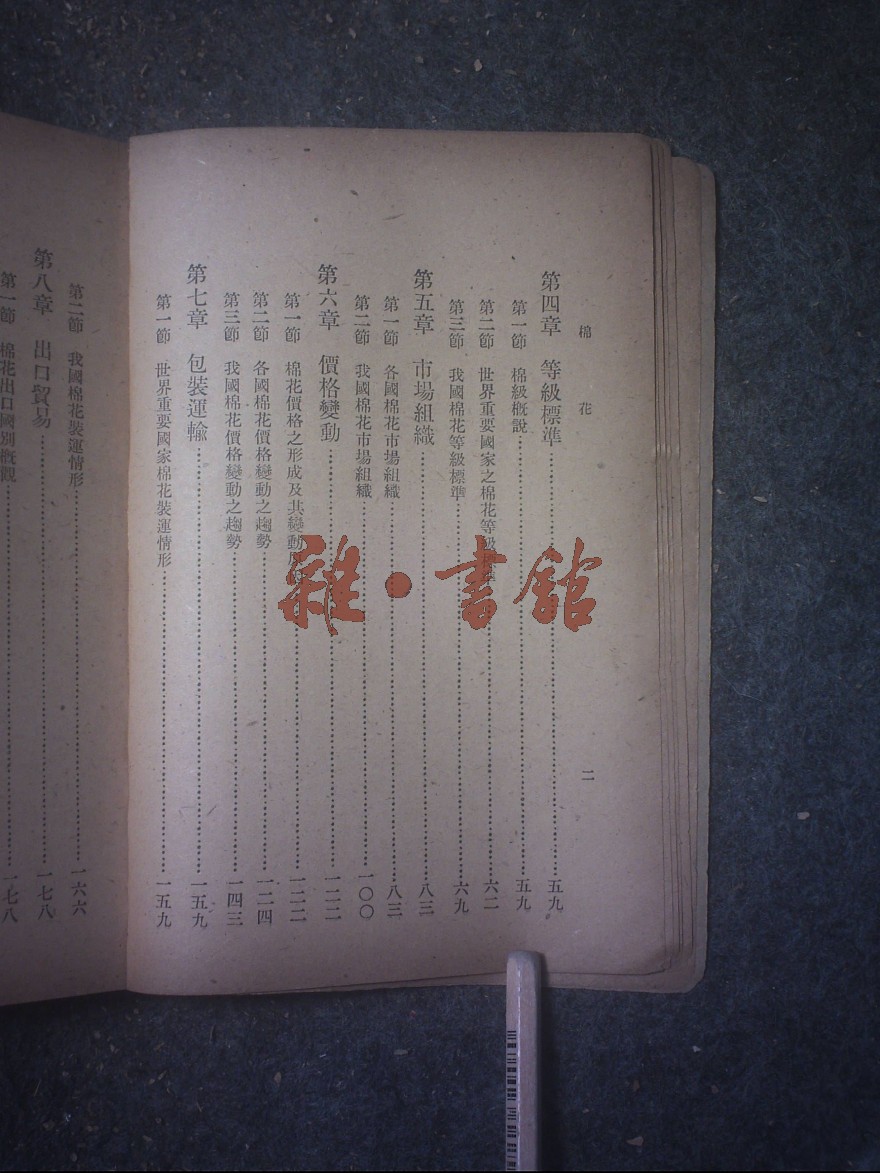 棉花
二
第四章　等級標準……五九
第一節　棉級概說……五九
第二節　世界重要國家之棉花等級標準……六二
第三節　我國棉花等級標準……六九
第五章　市場組織……八三
第一節　各國棉花市場組織……八三
第二節　我國棉花市場組織……一〇〇
第六章　價格變動……一二二
第一節　棉花價格之形成及其變動……一二二
第二節　各國棉花價格變動之趨勢……一二四
第三節　我國棉花價格變動之趨勢……一四三
第七章　包裝運輸……一五九
第一節　世界重要國家棉花裝運情形……一五九
第二節　我國棉花裝運情形……一六六
第八章　出口貿易……一七八
第一節　棉花出口國別概觀……一七八
雜·書館